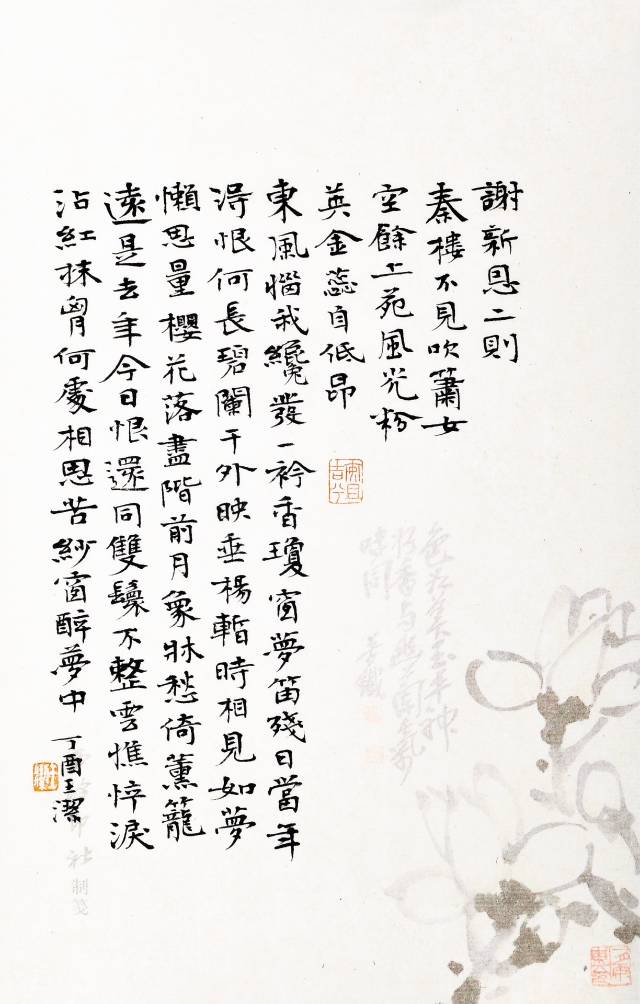 謝新恩二則
秦樓不見吹簫女
空餘上苑風光粉
英金蕊自低昂
東風惱我纔發一衿香瓊窗夢笛殘日當年
得恨何長碧闌干外映垂楊暫時相見如夢
懶思量櫻花落盡階前月象牀愁倚薰籠
遠是去年今日恨還同雙鬟不整雲憔悴淚
沾紅抹胷何處相思苦紗窗醉夢中 丁酉王潔
印社制箋